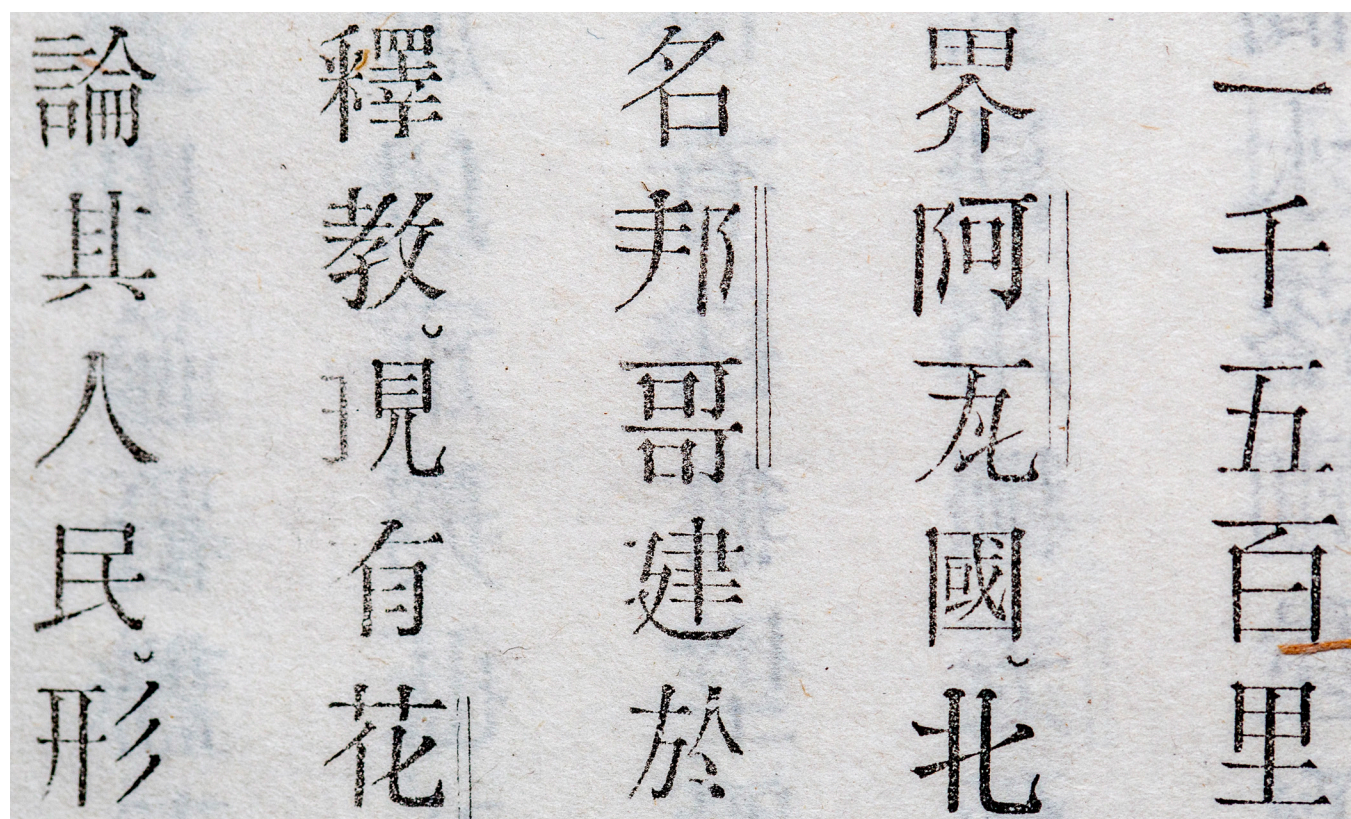 一千五百里
界阿瓦國北
名邦哥建於
釋教現有花
論其人民形